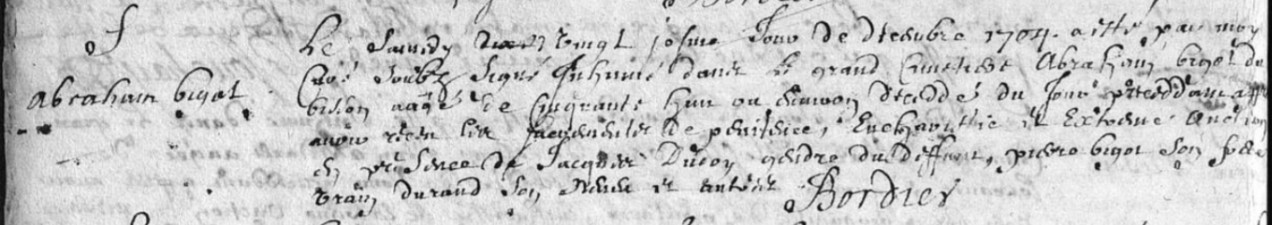 S
abraham bigot
Le Samedy vingt Jour de decembre 1704 a esté par moy
Curé soubz signé Inhumé dans le grand Cimetiere Abraham bigot du
aagé de Cinquante huit ou environ decedé du Jour preceddant apres
avoir receu les sacrements de penitence, Eucharistie et Extreme onction
en presence de Jacques Ducoy gendre du deffunt, pierre bigot son frere
vrain durand son neveu et autres Bordier